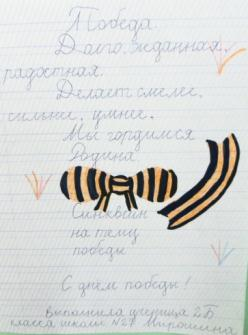 Победа.
Долгожданная,
радостная.
Делает смеле,
сильне, умне.
Мы гордимся
Родина
Синквейн
на тему
победы
С днём победы!
Выполнила ученица 2Б
класса школы №27 Мирошина